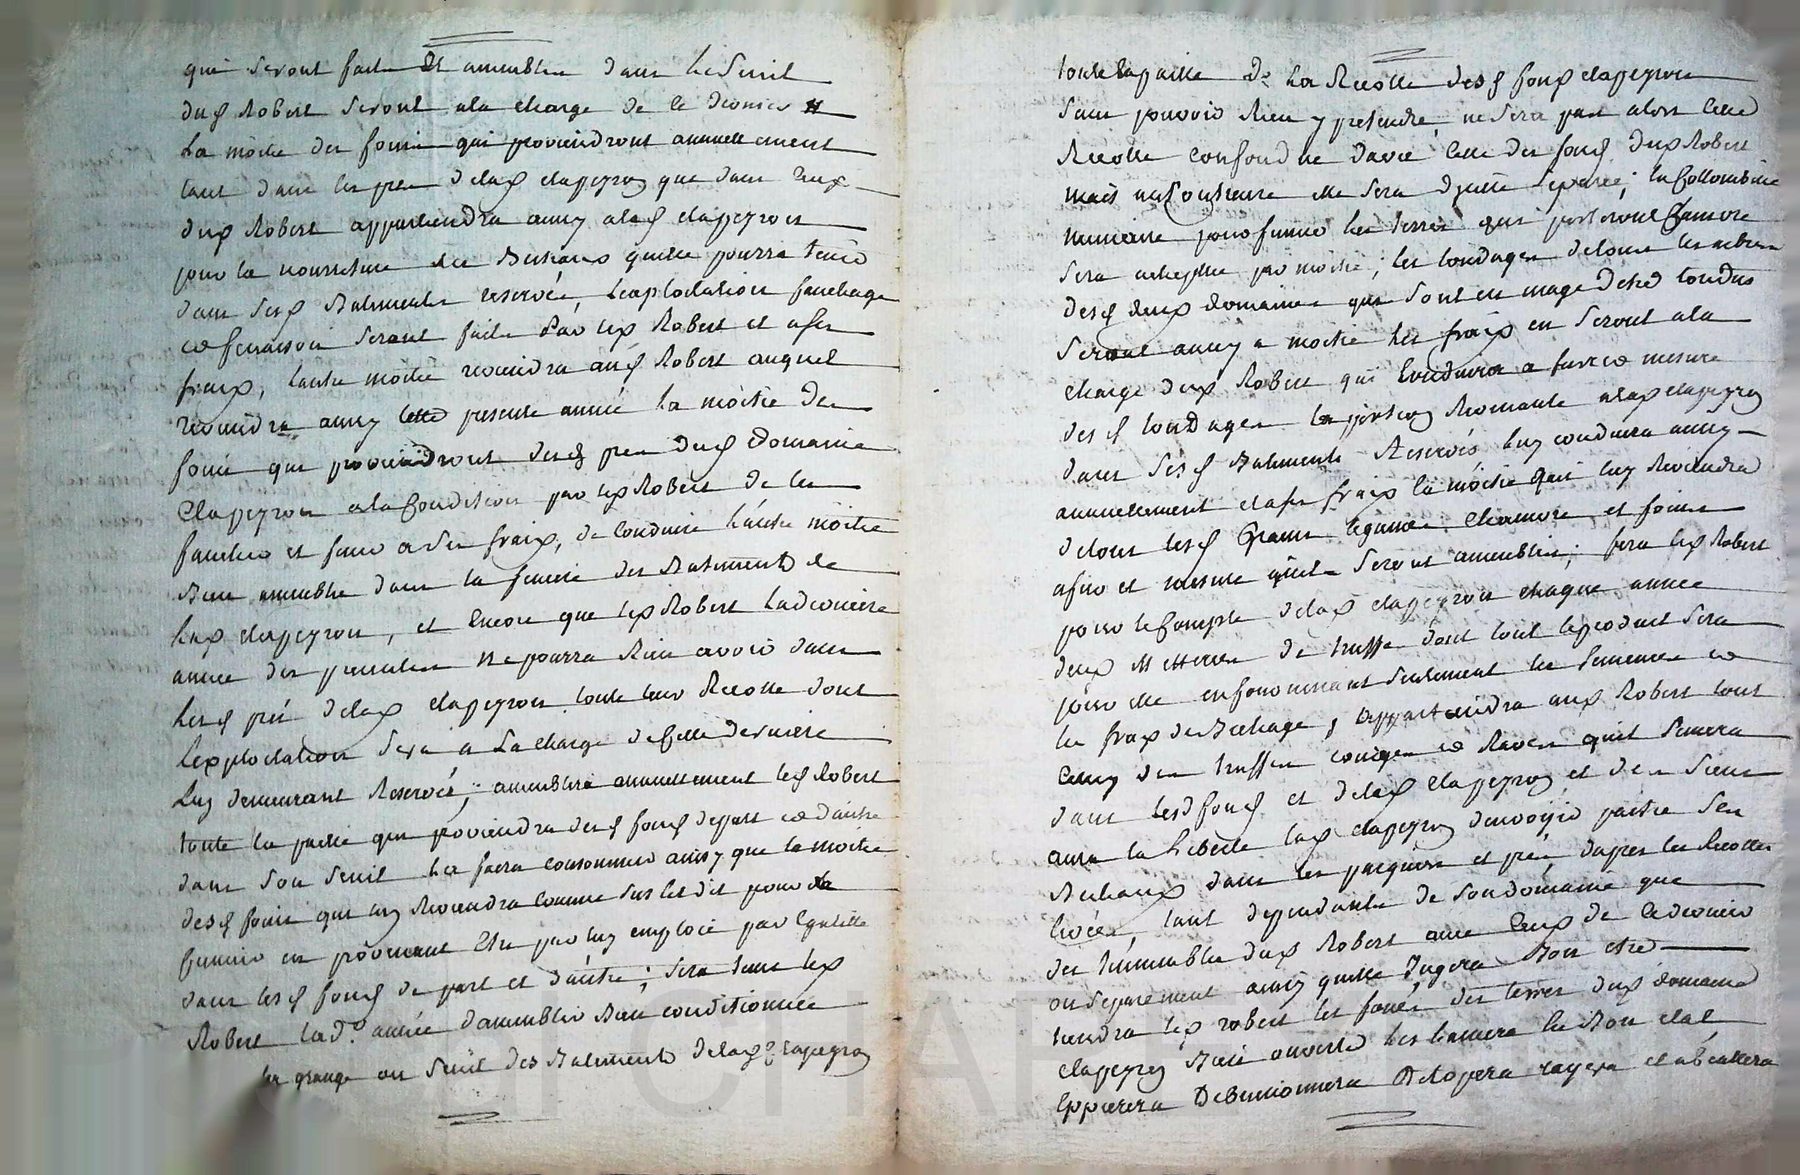 qui seront faits et amenblés dans le Seuil
dud Robert seront ala charge de ce dernier
La moitié des foins qui proviendront annuellement
tant dans les prés delad Clapeyron que dans ceux
dud Robert appartiendra aussy alad Clapeyron
pour la nourriture des Bestiaux quelle pourra tenir
dans sesd Batiments reservés, lexploitation fauchage
et fenaison seront faits par led Robert et a ses
fraix, lautre moitié reviendra aud Robert auquel
reviendra aussy cette presente année la moitié des
foins qui proviendront desd prés dud Domaine
Clapeyron ala Condition par led Robert de les
faucher et faner a ses fraix, de conduire l'autre moitié
Bien amenblée dans la feniere des Batiments de
lad Clapeyron, et Encore que led Robert La derniere
année des presentes ne pourra Rien avoir dans
lesd prés delad Clapeyron toute leur Recolte dont
lexploitation sera a La charge de Cette derniere
Luy demeurant Reservée; amenblera annuellement led Robert
toute la paille qui proviendra desd fonds de part et d'autre
dans son Seuil La faira consommer aussy que la moitié
desd foins qui luy Reviendra comme sus est dit pour le
fumier en provenant Etre par luy emploié par Egalité
dans lesd fonds de part et d'autre; sera tenu led
Robert lad.e année d'amenbler Bien conditionnée
la grange ou Seuil des Batiments delad.e Clapeyron
toute la paille De La Recolte desd fonds Clapeyron
sans pouvoir Rien y pretendre, ne sera pas alors cette
Recolte confondue avec Celle des fonds dud Robert
mais au Contraire elle sera ditte separée; la Collombine
necessaire pour fumer les terres qui porteront Chanvre
sera achettée par moitié; les tondages detous les arbres
desd deux domaines qui sont en usage detre tondus
seront aussy a moitié les fraix en seront ala
charge dud Robert qui Conduira a fur et mesure
desd tondages la portion Revenante alad Clapeyron
dans sesd Batiments Reservés luy conduira aussy
annuellement et a ses fraix la moitié qui luy Reviendra
detous lesd Grains legumes Chanvre et foins
a fur et mesure quils seront amenblés; fera led Robert
pour le Compte delad Clapeyron chaque année
deux Metterées de truffes dont tout le produit sera
pour elle en fournissant seulement les semences et
les fraix de Bechage, appartiendra aud Robert tout
Celuy des truffes courges et Raves quil semera
dans lesd fonds et delad Clapeyron et des siens
aura la Liberté lad Clapeyron denvoyer paitre ses
Bestiaux dans les paquiers et prés dapres les Recoltes
levées, tant dependants de son domaine que
des Immeubles dud Robert avec Ceux de ce dernier
ou separement ainsy quelle Jugera Bon etre
tiendra led robert les fossés des terres dud domaine
Clapeyron Bien ouverts les tiendra en Bon etat
Eppierera Debuissonnera